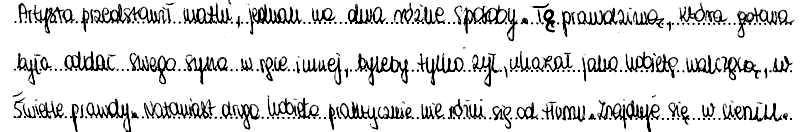 Artysta przedstawił matki, jednak na dwa różne sposoby. Tę prawdziwą, która gotowa
była oddać swego syna w ręce innej, byleby tylko żył, ukazał jako kobietę walczącą, w
świetle prawdy. Natomiast druga kobieta praktycznie nie różni się od tłumu. Znajduje się w cieniu.